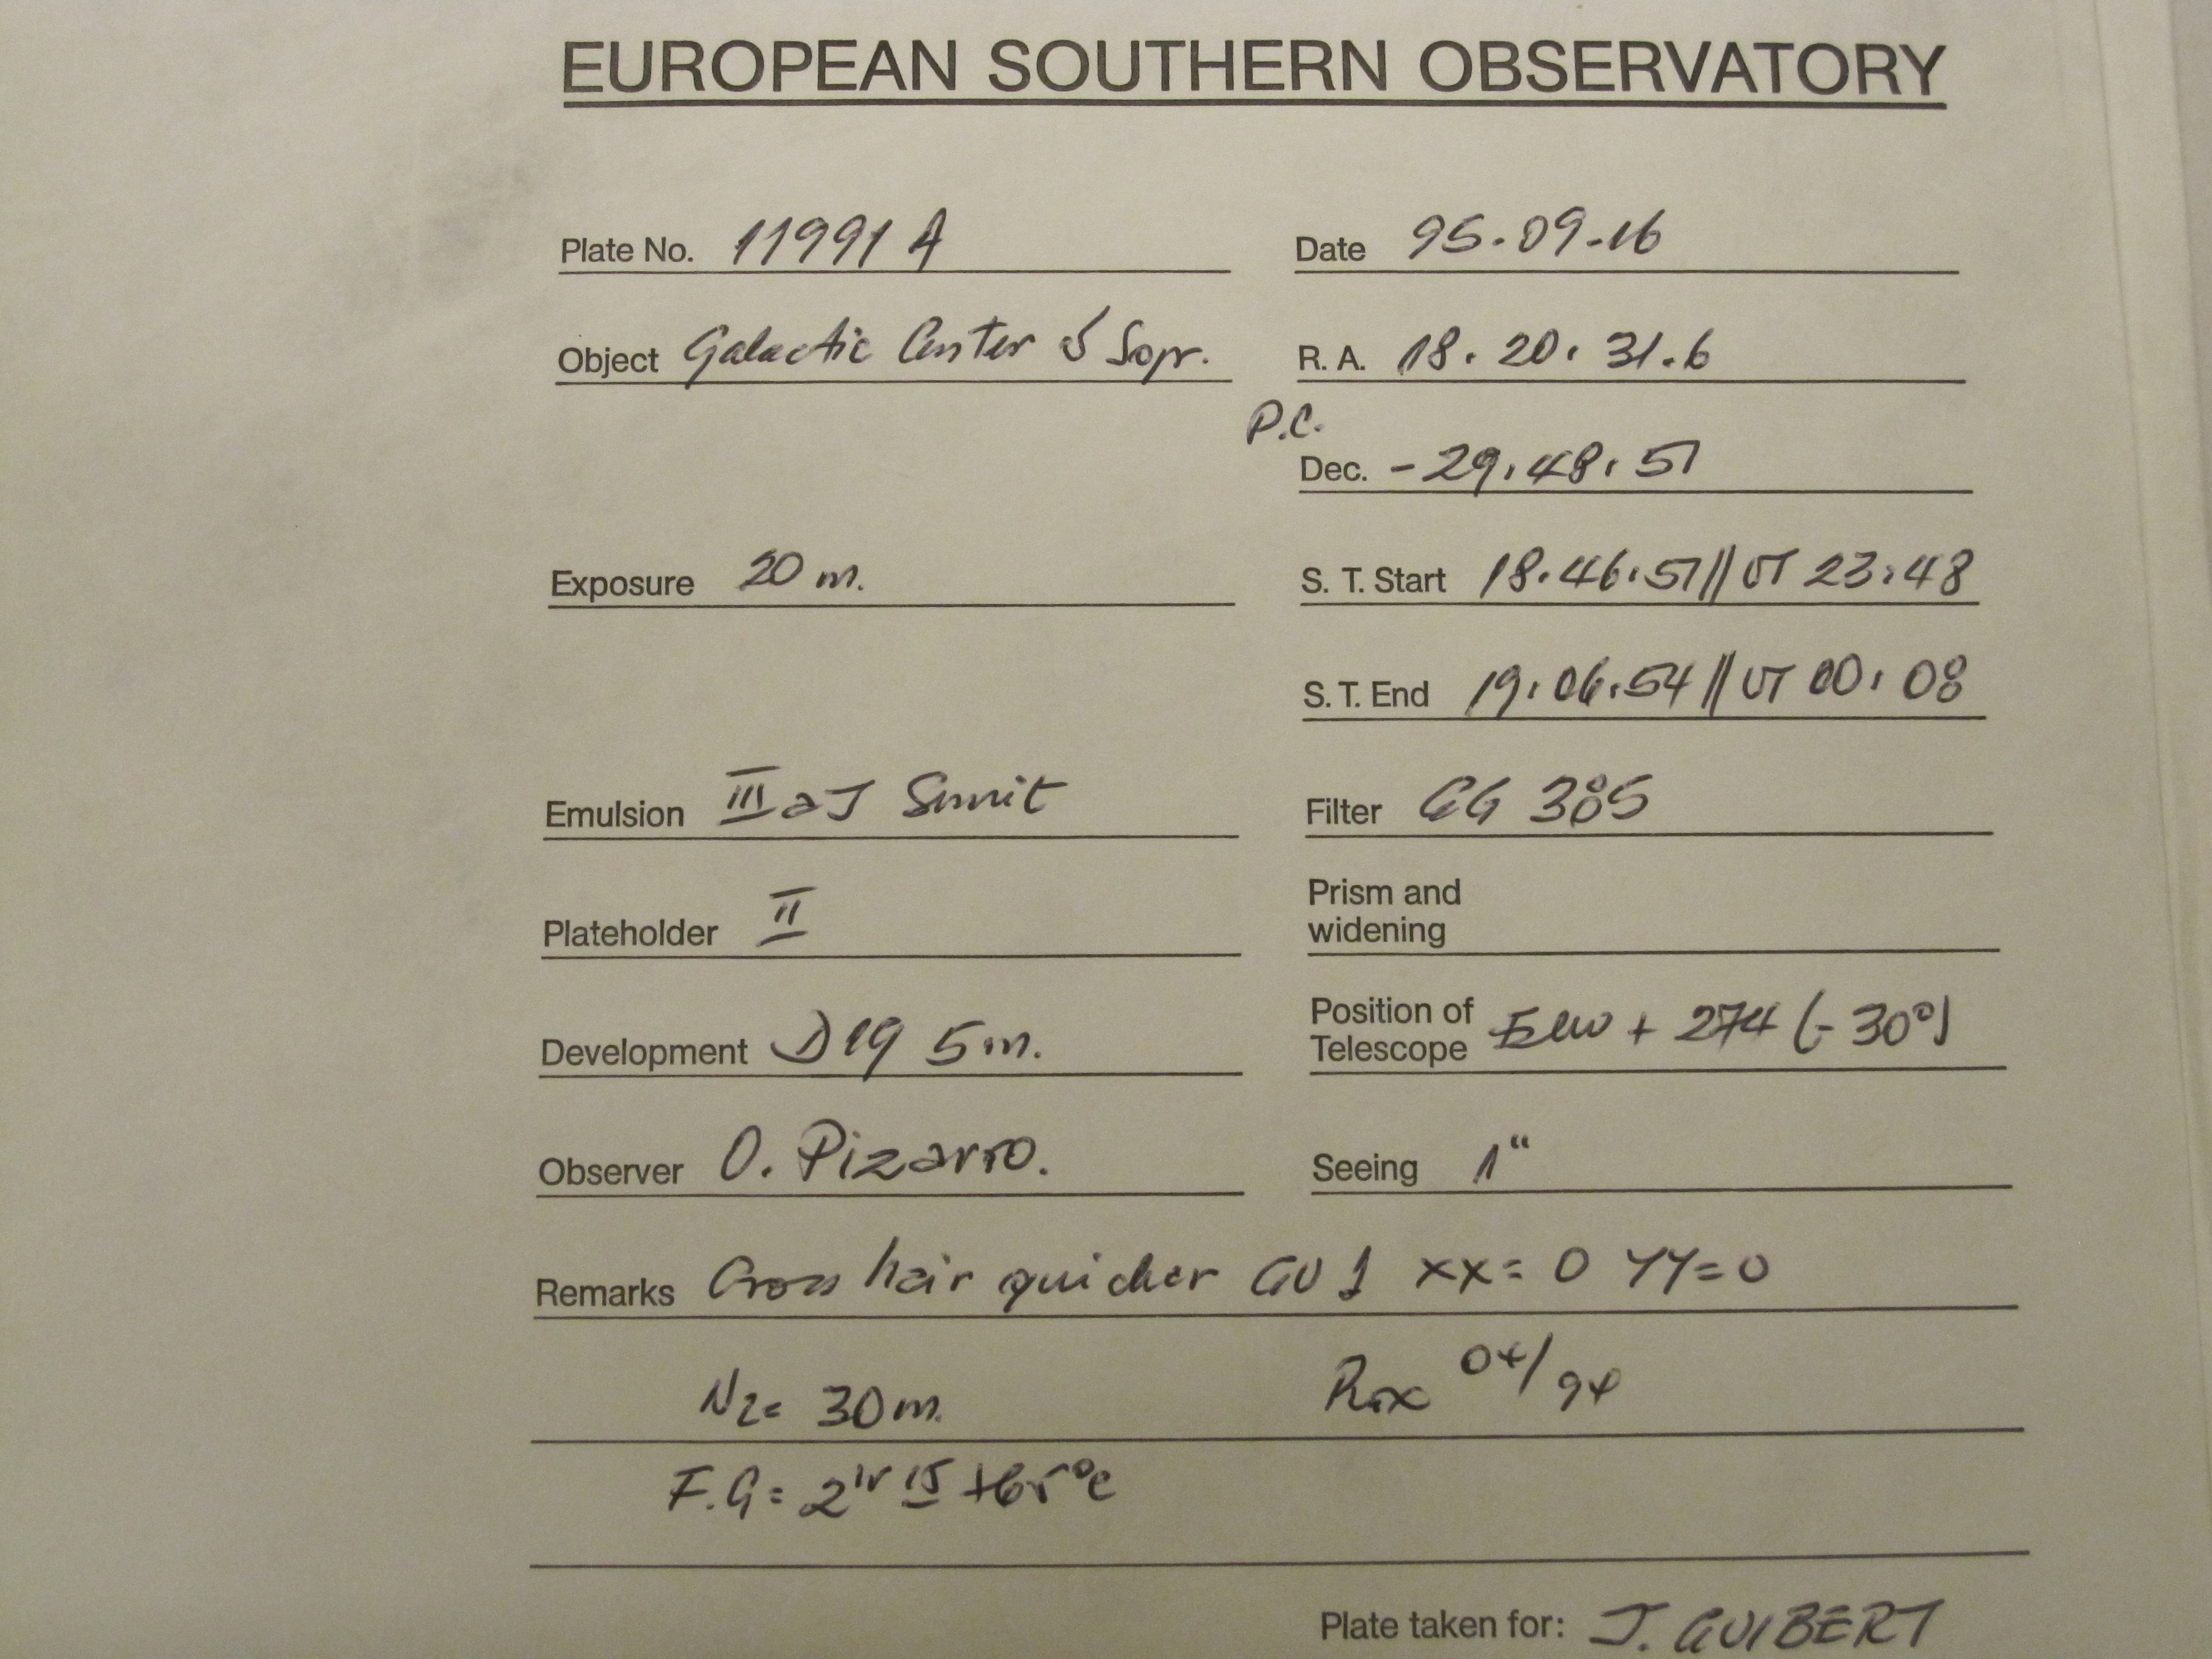 EUROPEAN SOUTHERN OBSERVATORY
Plate No. 11991 A Date 95.09.16
Object Galactic Center R.A. 18.20.31.6
P.C.
Dec. -29.48.51
Exposure 20 m. S.T. Start 18.46.51 // UT 23.48
S.T. End 19.06.54 // UT 00.08
Emulsion III aJ Filter GG 385
Plateholder II Prism and
widening
Development D19 5m. Position of
Telescope + 274 (-30°)
Observer O. Pizarro. Seeing 1"
Remarks Cross hair xx = 0 YY = 0
N2 = 30 m.
F.G =
Plate taken for: J. GUIBERT